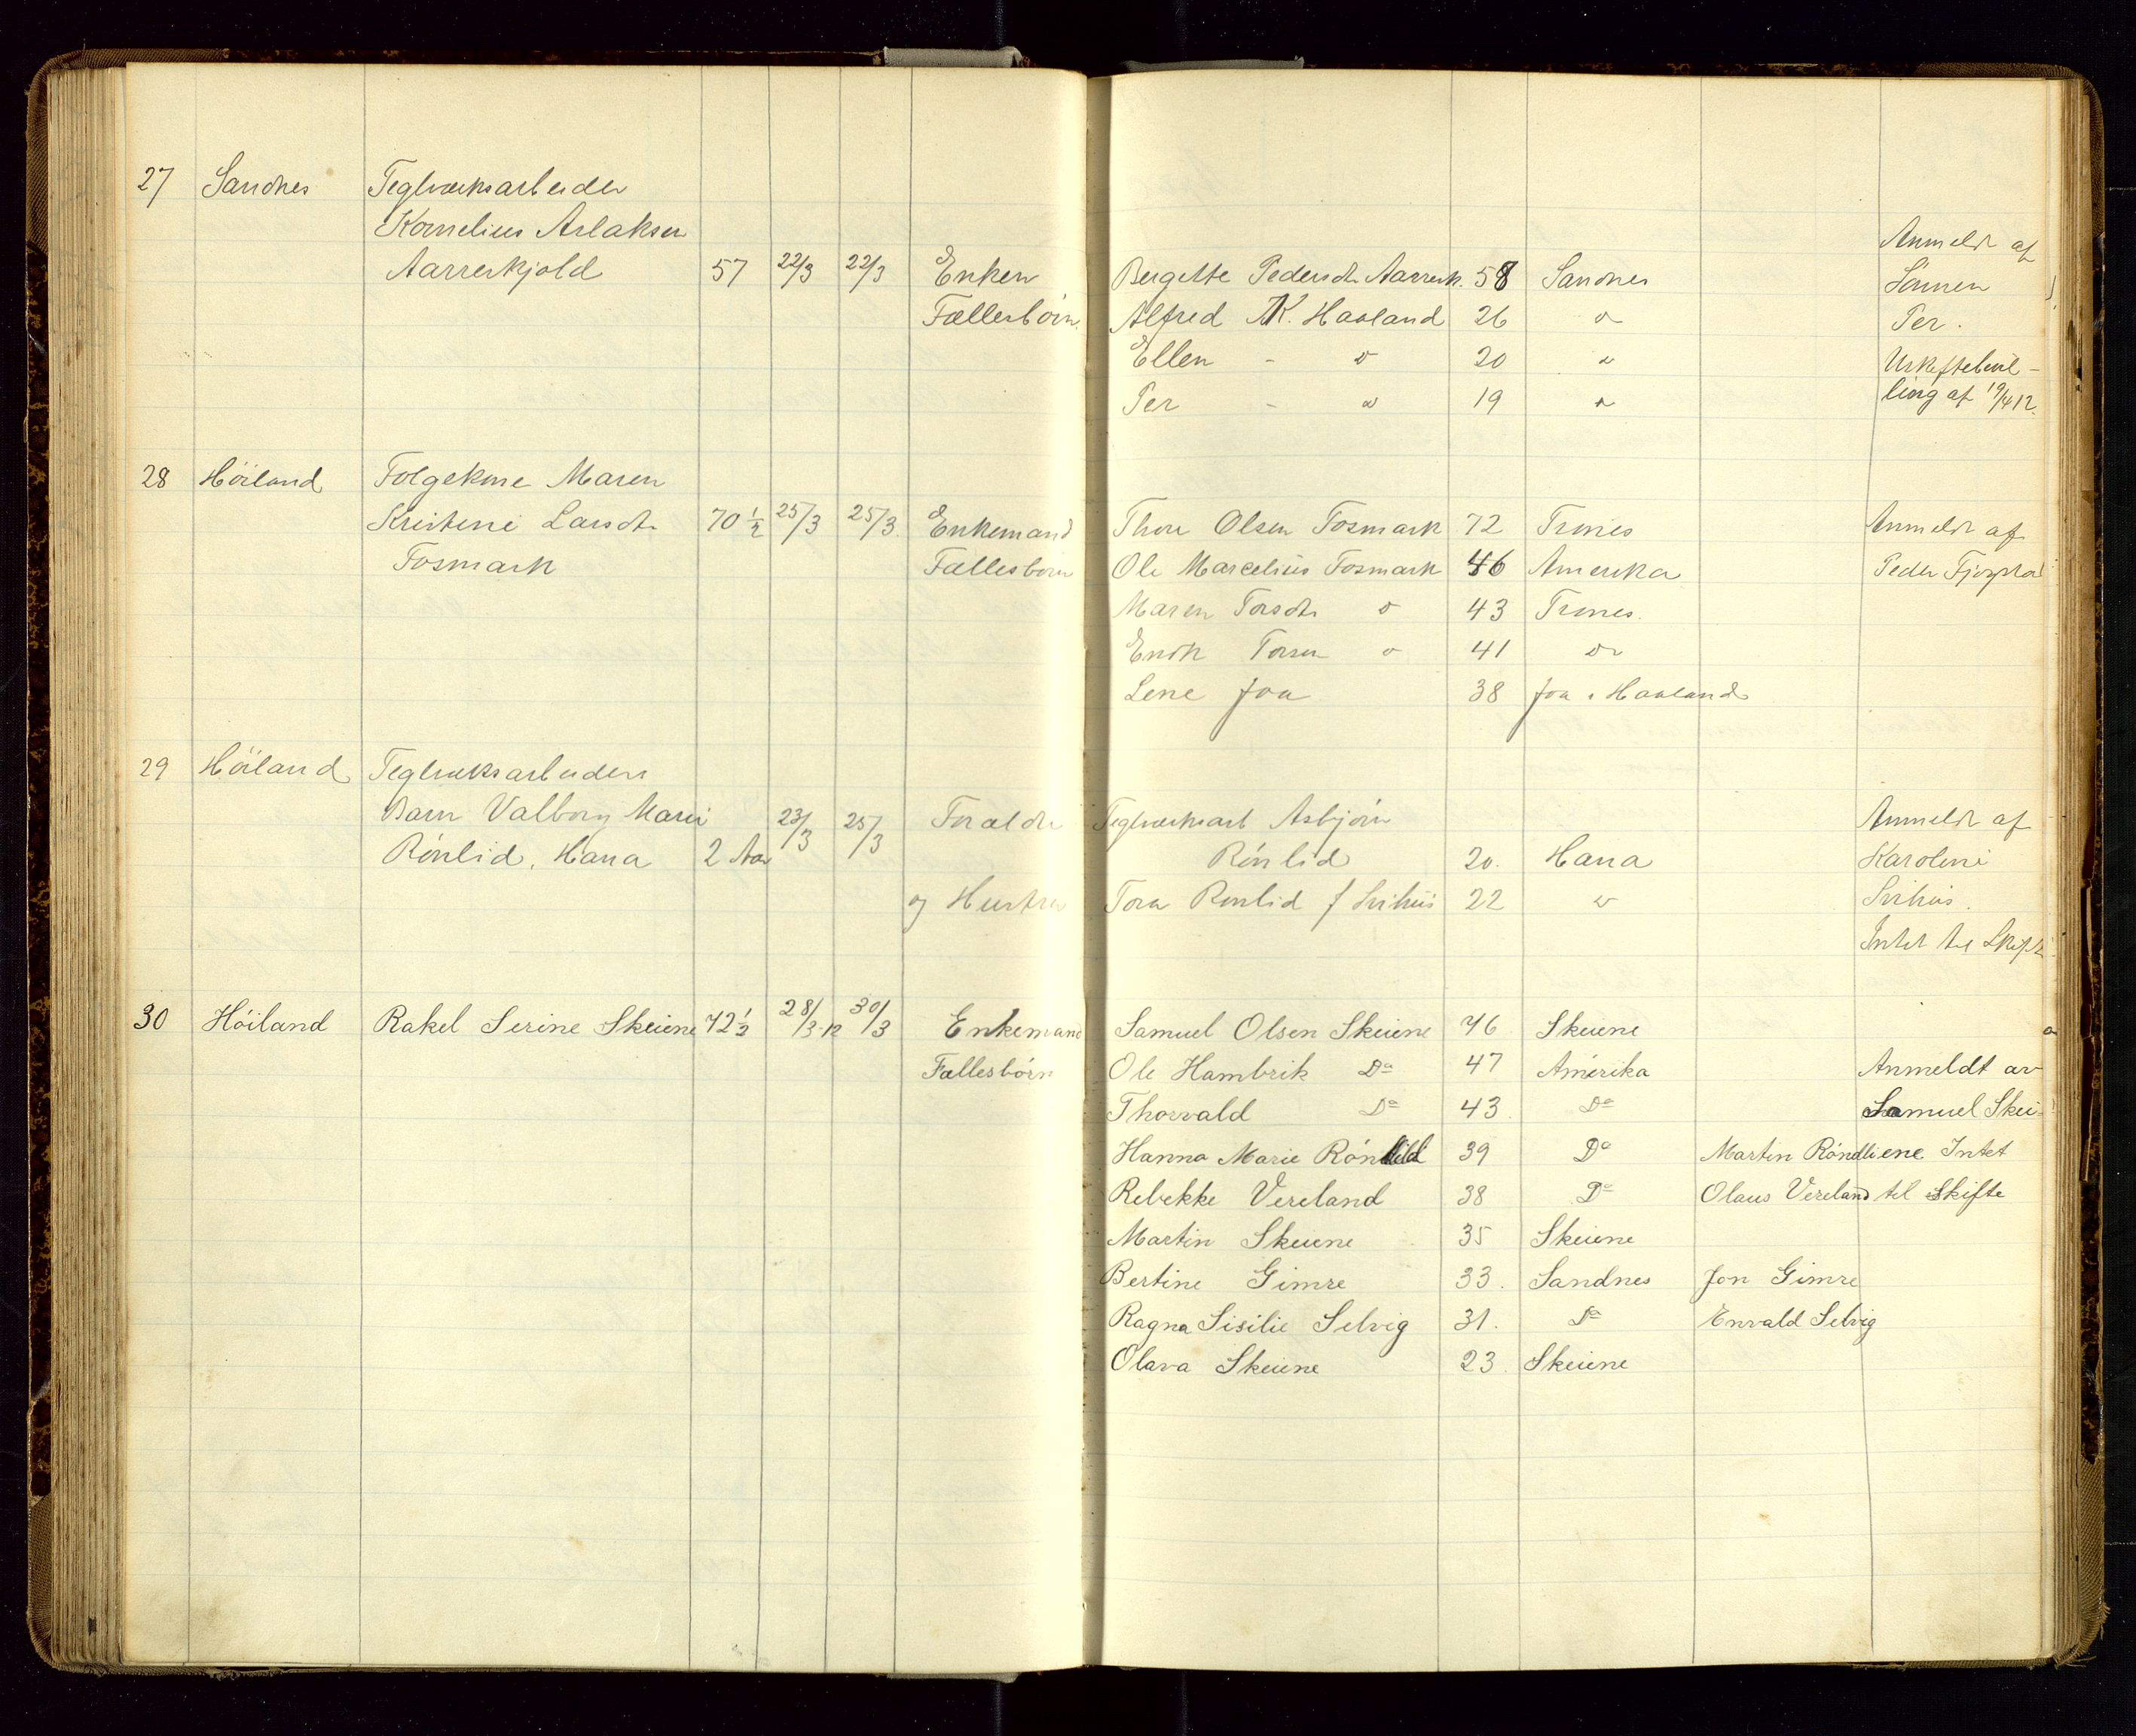 27 Sandnes Teglverksarbeider
Kornelius Aslaksen
Anmeldt af
Aarreskjold 57 22/3 22/3 Enken Bergitte Pedersdt. Aarresk. 58 Sandnes Sönnen
Fællesbörn Alfred K. Haaland 26 " Per.
Ellen - " 20 " Uskiftebevil-
Per - " 19 " ling af 19/4 12.
28 Höiland Folgekone Maren
Kristine Larsdt. 70 1/2 25/3 25/3. Enkemand Thore Olsen Fosmark 72 Trones Anmeldt af
Fosmark Fællesbörn Ole Marcelius Fosmark 46 Amerika Peder
Maren Torsdt. " 43 Trones.
Endre Torsen " 41 "
Lene Joa 38 Joa i Haaland
29 Höiland Teglverksarbeiders
Barn Valborg Marie 23/3 25/3 Forældre Teglverksarb Asbjörn Anmeldt af
Rönlid, Hana 2 Aar Rönlid 20. Hana Karoline
og Hustru Tora Rönlid f Svihus 22 " Svihus.
Intet til Skifte
30 Höiland Rakel Serine Skeiene 72 1/2 28/3-12 30/3 Enkemand Samuel Olsen Skeiene 76 Skeiene
Fællesbörn Ole Hambrik Do 47 Amerika Anmeldt av
Thorvald Do 43. Do Samuel Skei-
Hanna Marie Rönlid 39 Do Martin Röndli ene Intet
Rebekke Vereland 38 Do Olaus Vereland til Skifte
Martin Skeiene 35 Skeiene
Bertine Gimre 33. Sandnes Jon Gimre
Ragna Sisilie Selvig 31. Do Envald Selvig
Olava Skeiene 23. Skeiene